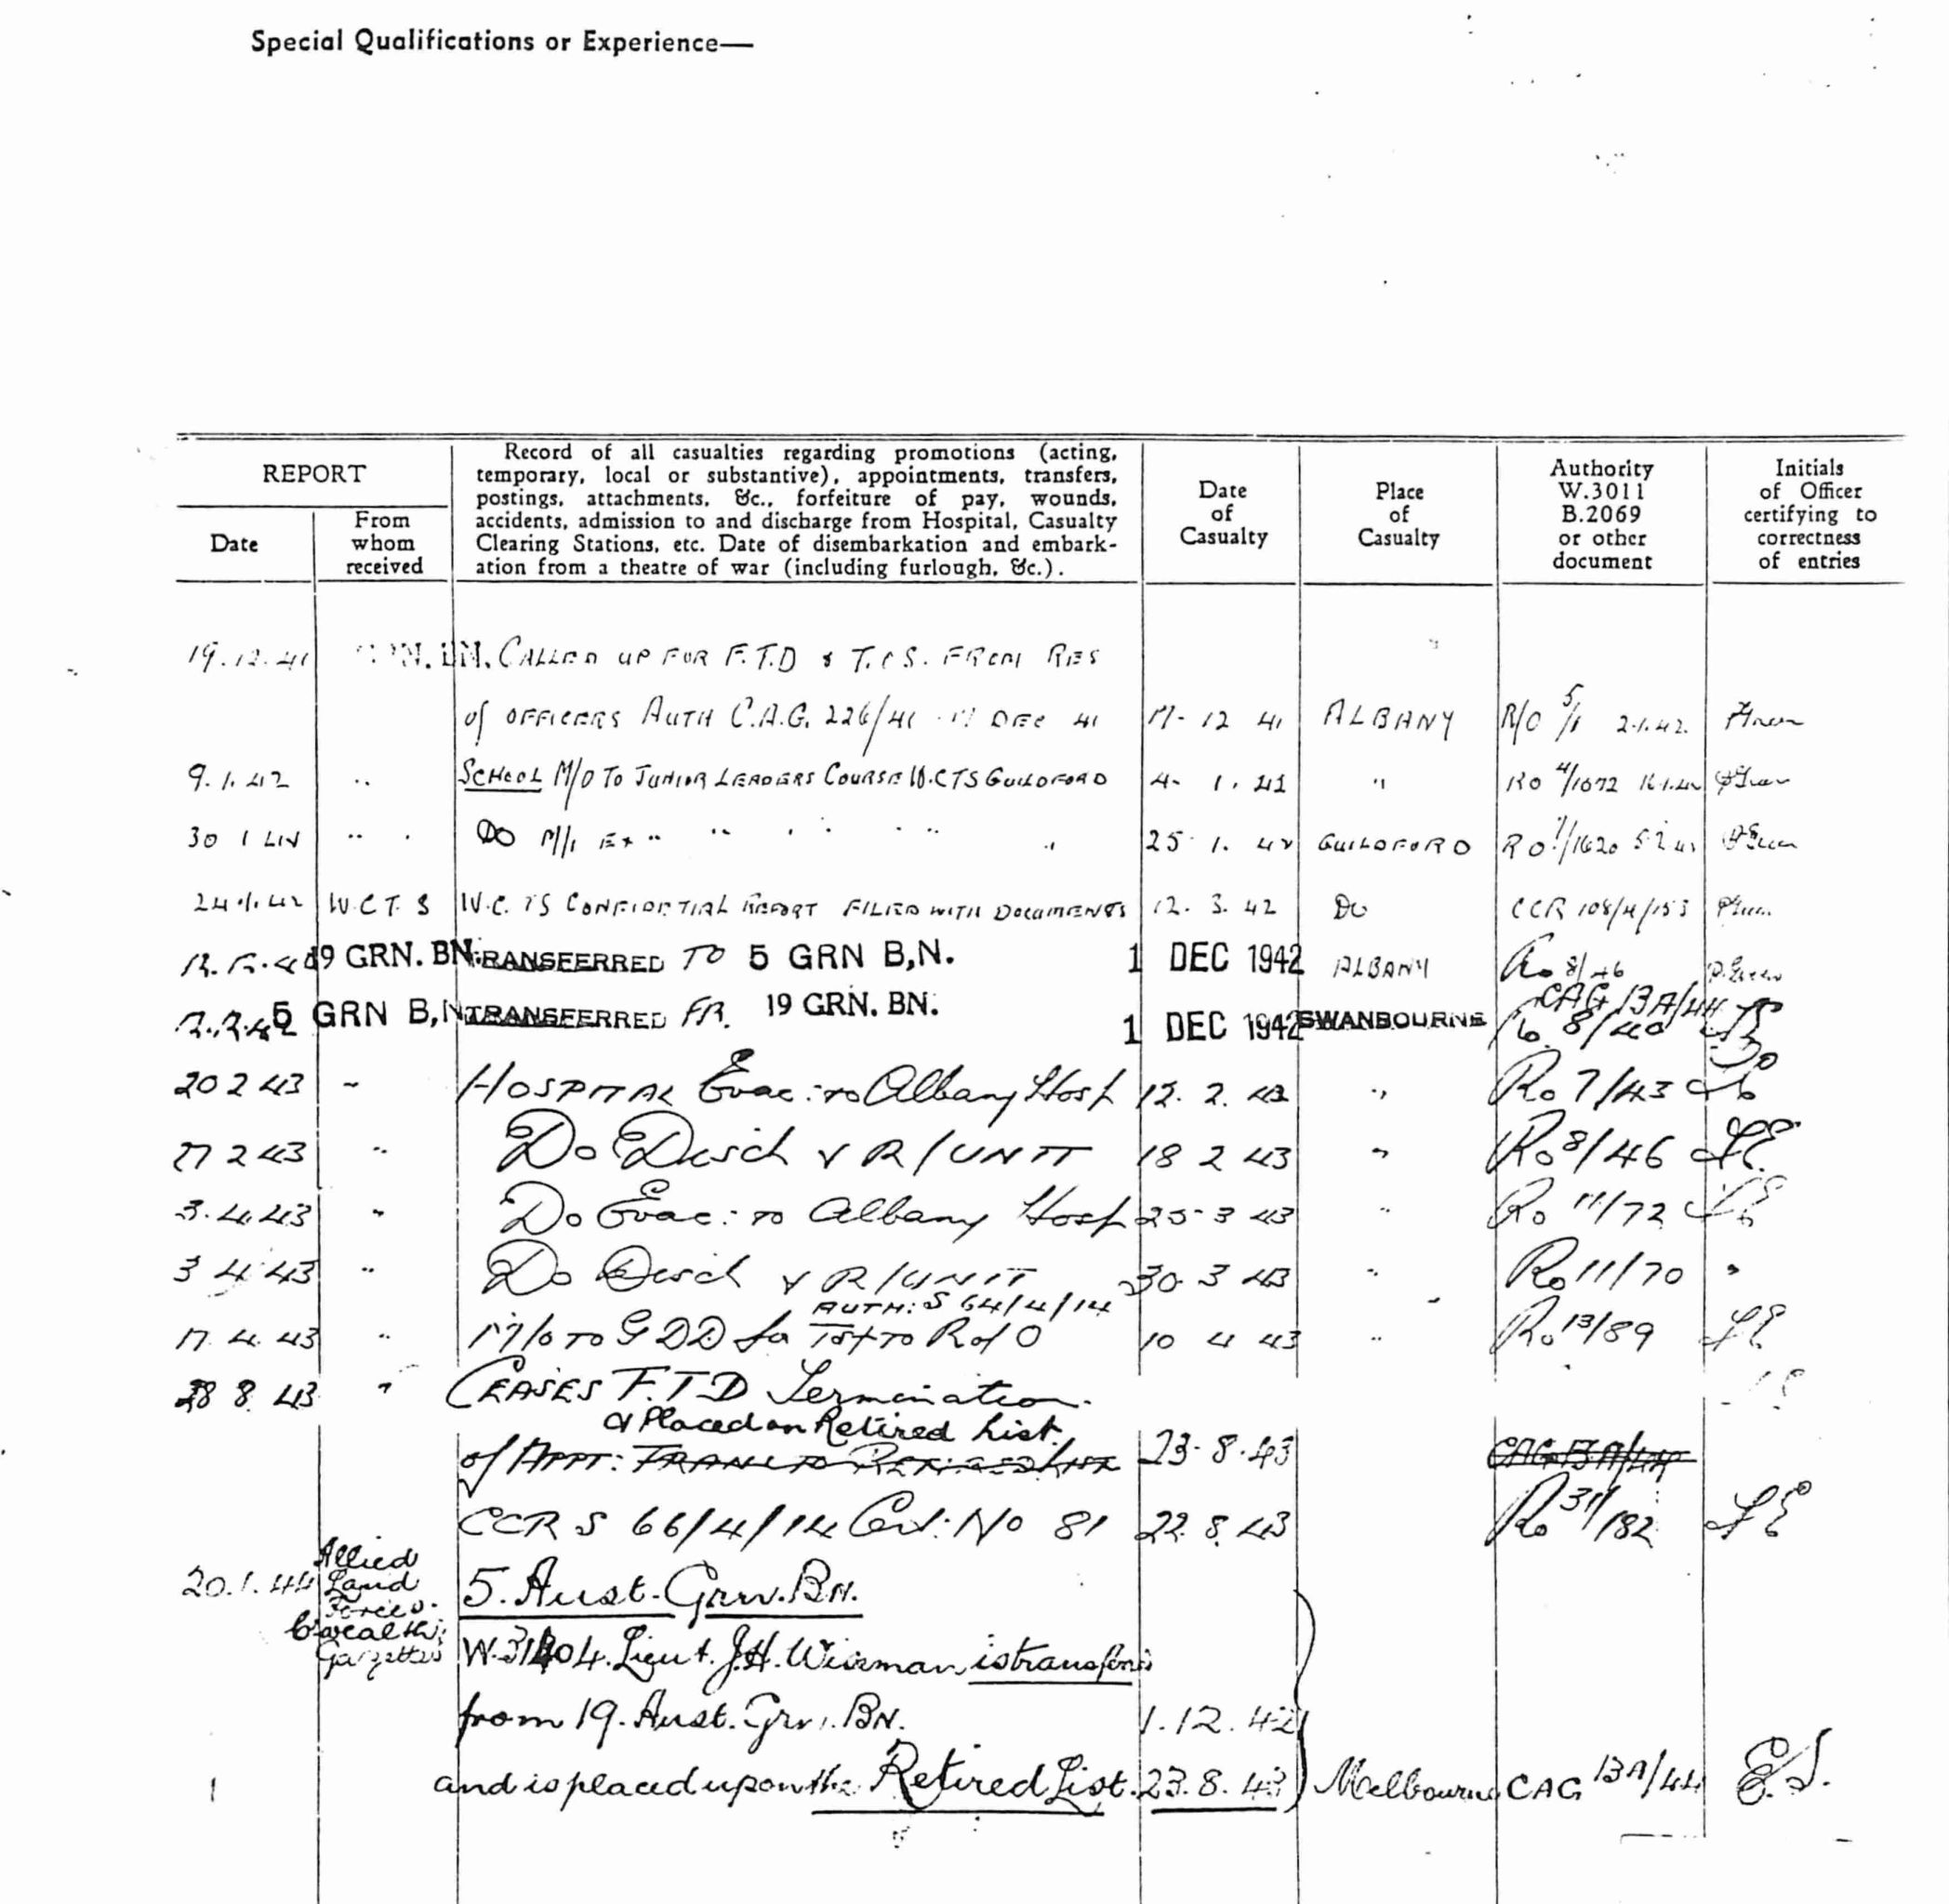 Special Qualifications or Experience—
REPORT
Date
From whom received
Record of all casualties regarding promotions (acting,
temporary, local or substantive), appointments, transfers,
postings, attachments, &c., forfeiture of pay, wounds,
accidents, admission to and discharge from Hospital, Casualty
Clearing Stations, etc. Date of disembarkation and embark-
ation from a theatre of war (including furlough, &c.).
Date of Casualty
Place of Casualty
Authority W.3011 B.2069 or other document
Initials of Officer certifying to correctness of entries
19.12.41 BN. CALLED UP FOR F.T.D & T.C S. FROM RES
of OFFICERS AUTH C.A.G. 226/41 17 DEC 41 17-12 41 ALBANY R/O 5/1 2.1.42.
9.1.42 .. SCHOOL M/O TO JUNIOR LEADERS COURSE W.CTS GUILDFORD 4- 1. 41 "
30 1 42 .. DO M/I EX " " " " 25 1. 42 GUILDFORD RO
24.1.42 W.C T. S W.C. TS CONFIDENTIAL REPORT FILED WITH DOCUMENTS 12. 3. 42 DO CCR 108/4/153
19 GRN. BN. TRANSFERRED TO 5 GRN B,N. 1 DEC 1942 ALBANY Ro 8/46
5 GRN B,N TRANSFERRED FR. 19 GRN. BN. 1 DEC 1942 SWANBOURNE CAG 13A/44 8/40
20 2 43 " HOSPITAL Evac: to Albany Hosp 12. 2. 43 " Ro 7/43
27 2 43 " Do Disch & R/UNIT 18 2 43 " Ro 8/46 LE
3.4.43 " Do Evac: to Albany Hosp 25-3 43 " Ro 11/72 LE
3 4 43 " Do Disch & R/UNIT 30 3 43 " Ro 11/70 "
AUTH: S 64/4/14
17. 4. 43 " M/O TO G D D for Tsf TO R of O 10 4 43 " Ro 13/89 LE
28 8. 43 " CEASES F.T.D Termination
& Placed on Retired List.
of APPT: TRANS TO RETIRED LIST 23-8-43 CAG 13A/44
CCR S 66/4/14 Cert: No 81 22. 8. 43 Ro 31/182 LE
20.1.44 Allied Land Forces. C'wealth Gazettes 5. Aust. Grn. BN.
Lieut. J.H. Wisman is transferred
from 19. Aust. Grn. BN. 1.12.42
and is placed upon the Retired List. 23.8.43 Melbourne CAG 13A/44